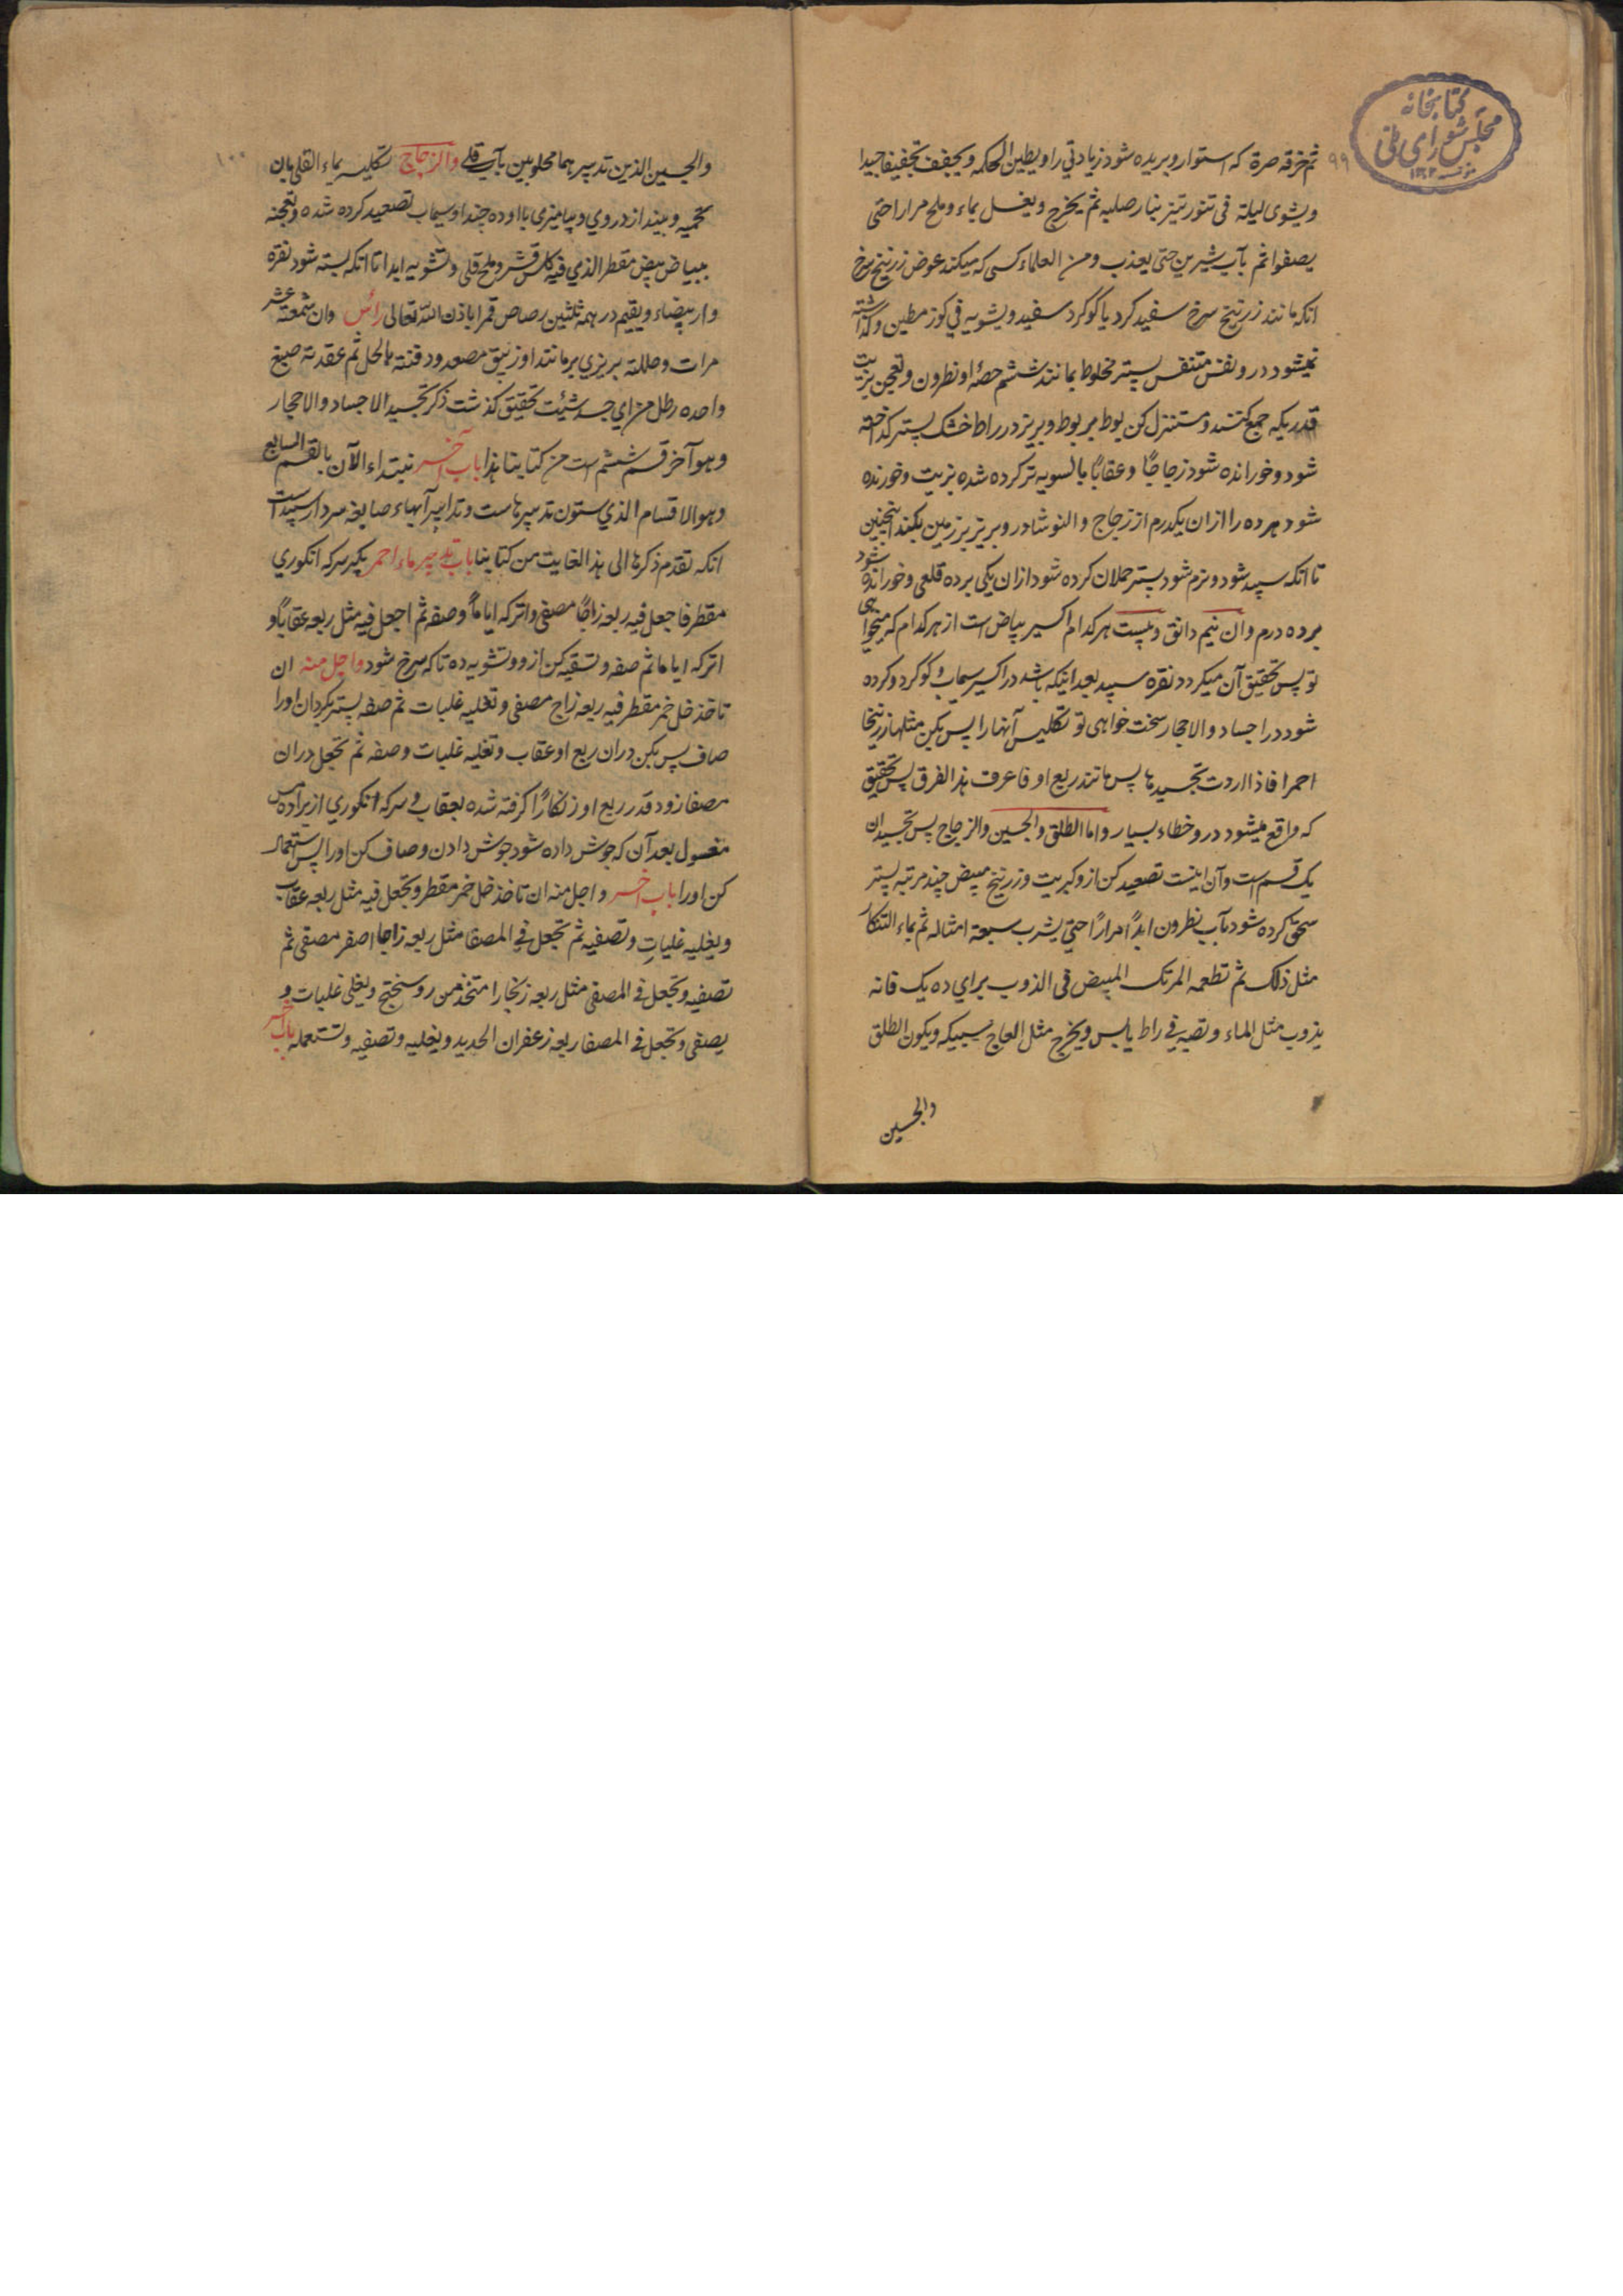 کتابخانه
مجلس شورای ملی
۹۹
ثم خرقه صرة که استوار و بریده شود زیادتی را و یطین الحکمه و یجفف تجفیفا جیدا
و یشوی لیلة فی تنور تیز بنار صلبه ثم یخرج و یغسل بماء و ملح مرارا حتی
یصفوا ثم بآب شیرین حتی یعذب و من العلماء کسی که میکند عوض زرنیخ سرخ
انکه مانند زرنیخ سرخ سفید کرد یا کوکرد سفید و یشویه فی کوز مطین و کذاشته
نمیشود در و نفس متنفس پستر مخلوط بمانند ششم حصهٔ او نطرون و تعجن بزیت
قدریکه جمع کنند و مستنزل کن بوط بر بوط و بریز در راط خشک پستر کداخته
شود و خورانده شود زجاجًا و عقابًا بالسویه تر کرده شده بزیت و خورنده
شود هر ده را ازان یکدرم از زجاج و النوشادر و بریز بر زمین بکند اینچنین
تا انکه سپید شود و نرم شود پستر حملان کرده شود ازان یکی بر ده قلعی و خورانده شود
بر ده درم وان نیم دانق و بیست هر کدام اکسیر بیاض است از هر کدام که میخواهی
تو پس تحقیق آن میکردد نقره سپید بعد اینکه باشد در اکسیر سیماب و کوکرد و کرده
شود در اجساد و الاحجار سخت خواهی تو تکلیس آنها را پس بکن مثلها زرنیخا
احمرا فاذا اردت تجسیدها پس مانند ربع او فاعرف هذا الفرق پس تحقیق
که واقع میشود در و خطاء بسیار و اما الطلق و الجسین و الزجاج پس تجسید ان
یک قسم است و آن اینست تصعید کن ازو کبریت و زرنیخ مبیض چند مرتبه پستر
سحق کرده شود بآب نطرون ابدًا مرارًا حتی یشرب سبعة امثاله ثم بماء التنکار
مثل ذلک ثم تطعمه المرتک المبیض فی الذوب برای ده یک فانه
یذوب مثل الماء و تصبه فی راط یابس و یخرج مثل العاج سبیکه و یکون الطلق
والجسین
۱۰۰
والجسین الذین تدبیر هما محلوبین بآب قلی والزجاج تکلیسه بماء القلی بان
تحمیه و بینداز در وی و بیامیزی با او ده چند او سیماب تصعید کرده شده و تعجنه
ببیاض بیض مقطر الذی فیه کلس قشر و ملح قلی و تشویه ابدا تا انکه بسته شود نقره
وار بیضاء و یقیم در همه ثلثین رصاص قمرا باذن الله تعالی رأس وان شمعته عشر
مرات و حللته بریزی بر مانند او زیبق مصعد و دفنته بالحل ثم عقدته صبغ
واحده رطل من ای جسد شیئت تحقیق کذشت ذکر تجسید الاجساد والاحجار
و هو آخر قسم ششم است من کتابنا هذا باب آخر نبتداء الآن بالقسم السابع
و هو الاقسام الذی ستون تدبیرهاست و تدابیر آبهاء صابغه سردار سپید است
انکه تقدم ذکرها الی هذا الغایت من کتابنا باب تدبیر ماء احمر بکیر سرکه انکوری
مقطر فاجعل فیه ربعه زاجًا مصفی و اترکه ایامًا و صفه ثم اجعل فیه مثل ربعه عقابًا و
اترکه ایاما ثم صفه و تسقیه کن ازو و تشویه ده تا که سرخ شود واجل منه ان
تاخذ خل خمر مقطر فیه ربعه زاج مصفی و تغلیه غلیات ثم صفه پستر بکردان اورا
صاف پس بکن دران ربع او عقاب و تغلیه غلیات و صفه ثم تجعل دران
مصفا زود قدر ربع او زنکارًا کرفته شده بعقاب و سرکه انکوری از براده مس
مغسول بعد آن که جوش داده شود جوش دادن و صاف کن اورا پس استعمال
کن اورا باب آخر و اجل منه ان تاخذ خل خمر مقطر و تجعل فیه مثل ربعه عقاب
و یغلیه غلیاتٍ و تصفیه ثم تجعل فی المصفا مثل ربعه زاجا اصفر مصفی ثم
تصفیه و تجعل فی المصفی مثل ربعه زنجارا متخذ من روسختج و یغلی غلیات و
یصفی و تجعل فی المصفا ربعه زعفران الحدید و یغلیه و تصفیه و تستعمله باب آخر